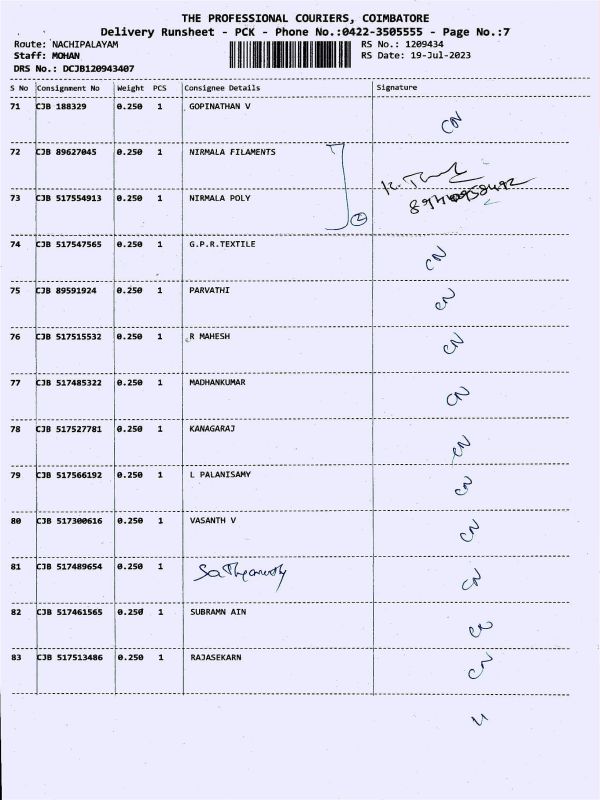 THE PROFESSIONAL COURIERS, COIMBATORE
Delivery Runsheet - PCK - Phone No.:0422-3505555 - Page No.:7
Route: NACHIPALAYAM RS No.: 1209434
Staff: MOHAN RS Date: 19-Jul-2023
DRS No.: DCJB120943407
S No Consignment No Weight PCS Consignee Details Signature
71 CJB 188329 0.250 1 GOPINATHAN V
CN
72 CJB 89627045 0.250 1 NIRMALA FILAMENTS
73 CJB 517554913 0.250 1 NIRMALA POLY
2
74 CJB 517547565 0.250 1 G.P.R.TEXTILE
CN
75 CJB 89591924 0.250 1 PARVATHI
CN
76 CJB 517515532 0.250 1 R MAHESH
CN
77 CJB 517485322 0.250 1 MADHANKUMAR
CN
78 CJB 517527781 0.250 1 KANAGARAJ
CN
79 CJB 517566192 0.250 1 L PALANISAMY
CN
80 CJB 517300616 0.250 1 VASANTH V
CN
81 CJB 517489654 0.250 1
CN
82 CJB 517461565 0.250 1 SUBRAMN AIN
CN
83 CJB 517513486 0.250 1 RAJASEKARN
CN